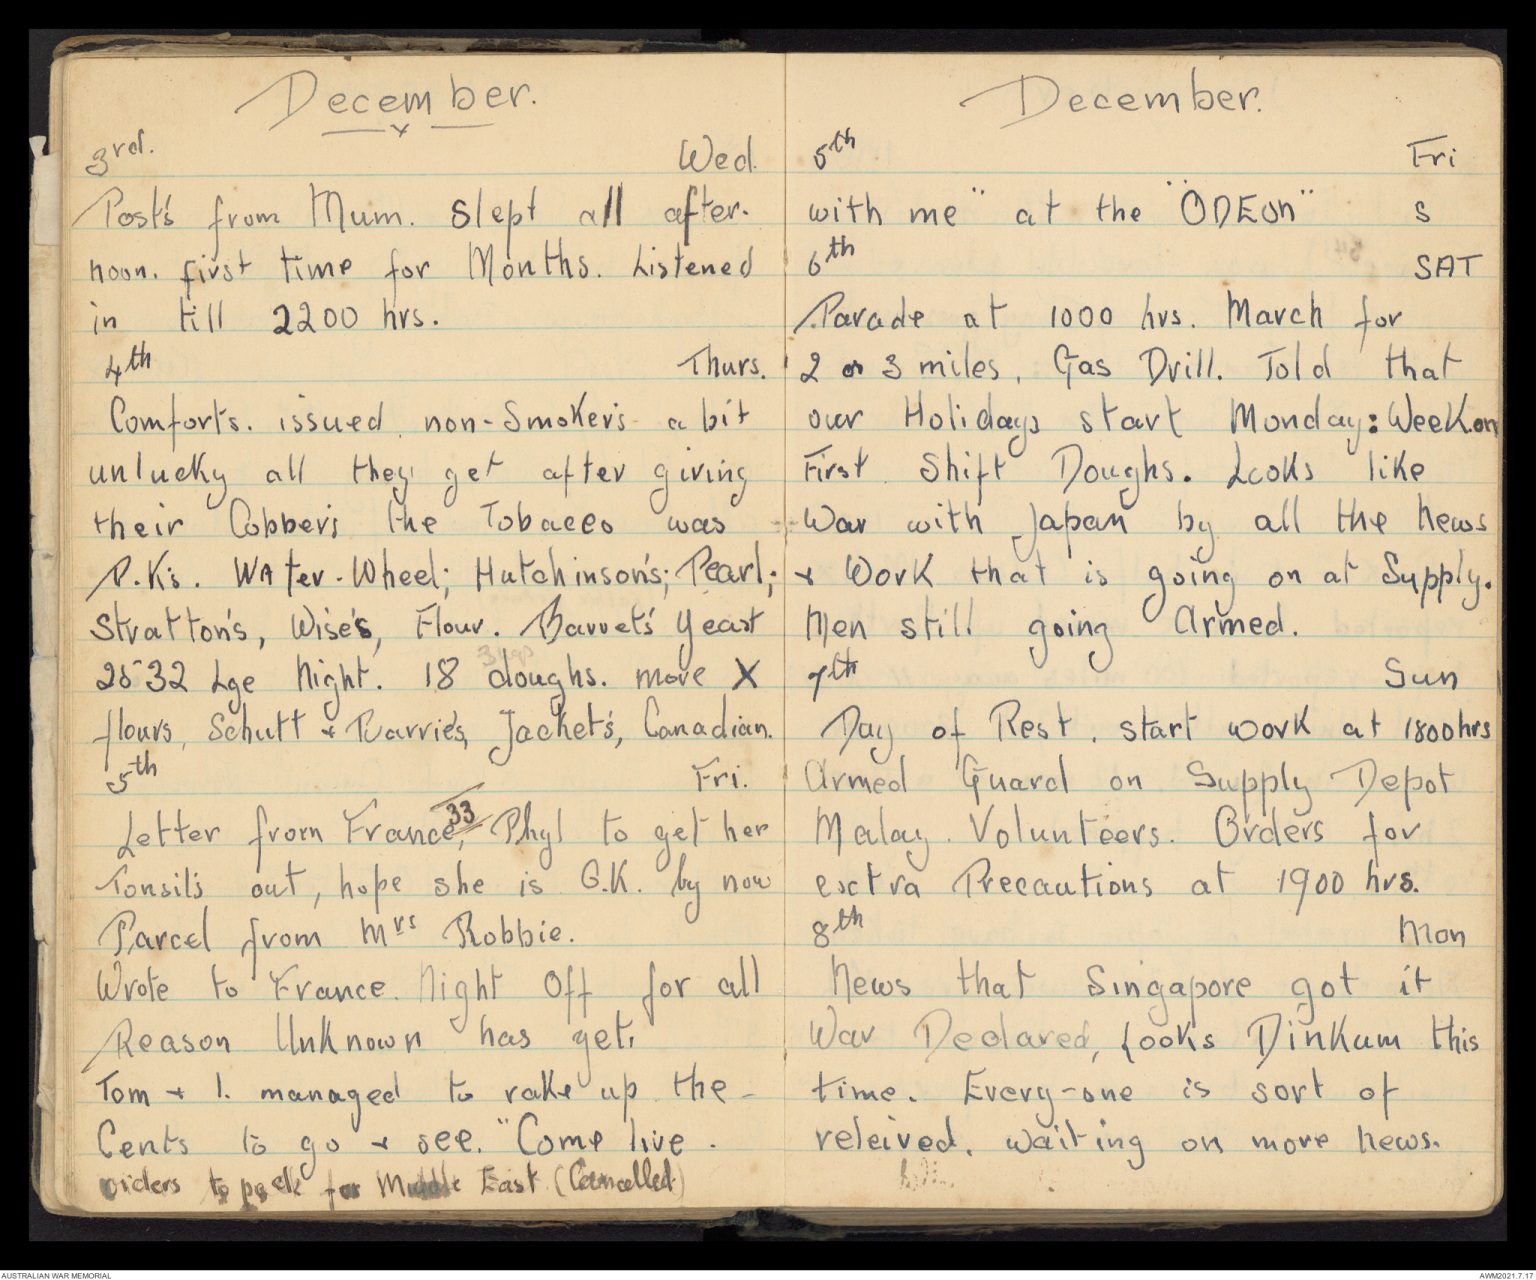 December.
3rd. Wed.
Posts from Mum. Slept all after-
noon. first time for Months. Listened
in till 2200 hrs.
4th Thurs.
Comforts. issued. non-Smokers a bit
unlucky all they get after giving
their Cobbers the Tobacco was
P.K's. Water-Wheel; Hutchinson's; Pearl;
Stratton's, Wise's, Flour. Barret's Yeast
32 Lge Night. 18 doughs. more X
flours, Schutt + Barries, Jacket's, Canadian.
5th Fri.
33
Letter from France, Phyl to get her
Tonsils out, hope she is O.K. by now
Parcel from Mrs Robbie.
Wrote to France. Night Off for all
Reason Unknown has yet.
Tom + I. managed to rake up the
Cents to go + see. "Come live.
orders to pack for Middle East (Cancelled)
December.
5th Fri
with me" at the "ODEON" S
6th SAT
Parade at 1000 hrs. March for
2 or 3 miles, Gas Drill. Told that
our Holidays start Monday: Week on
First Shift Doughs. Looks like
War with Japan by all the News
+ Work that is going on at Supply.
Men still going Armed.
7th Sun
Day of Rest. start work at 1800 hrs
Armed Guard on Supply Depot
Malay. Volunteers. Orders for
exctra Precautions at 1900 hrs.
8th Mon
News that Singapore got it
War Declared, Looks Dinkum this
time. Every-one is sort of
releived. waiting on more news.
AUSTRALIAN WAR MEMORIAL
AWM2021.7.17